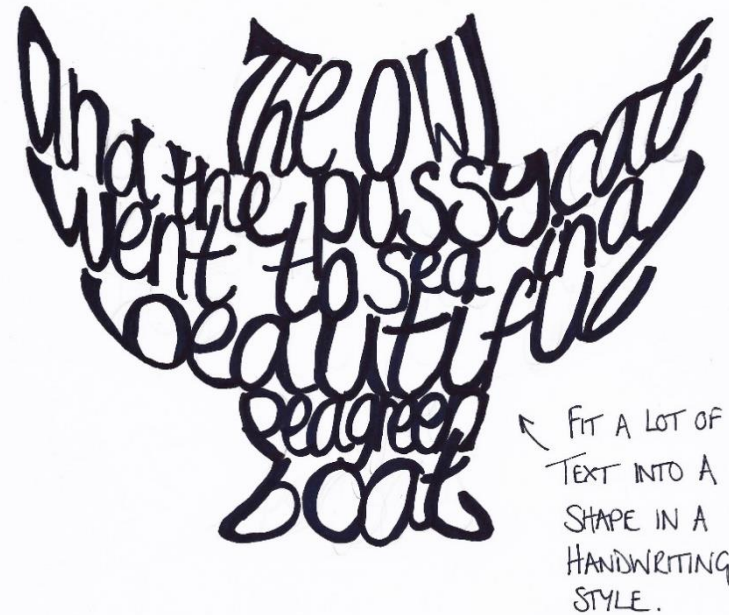 The Owl
and the pussycat
went to sea in a
beautiful
peagreen
boat
FIT A LOT OF
TEXT INTO A
SHAPE IN A
HANDWRITING
STYLE.